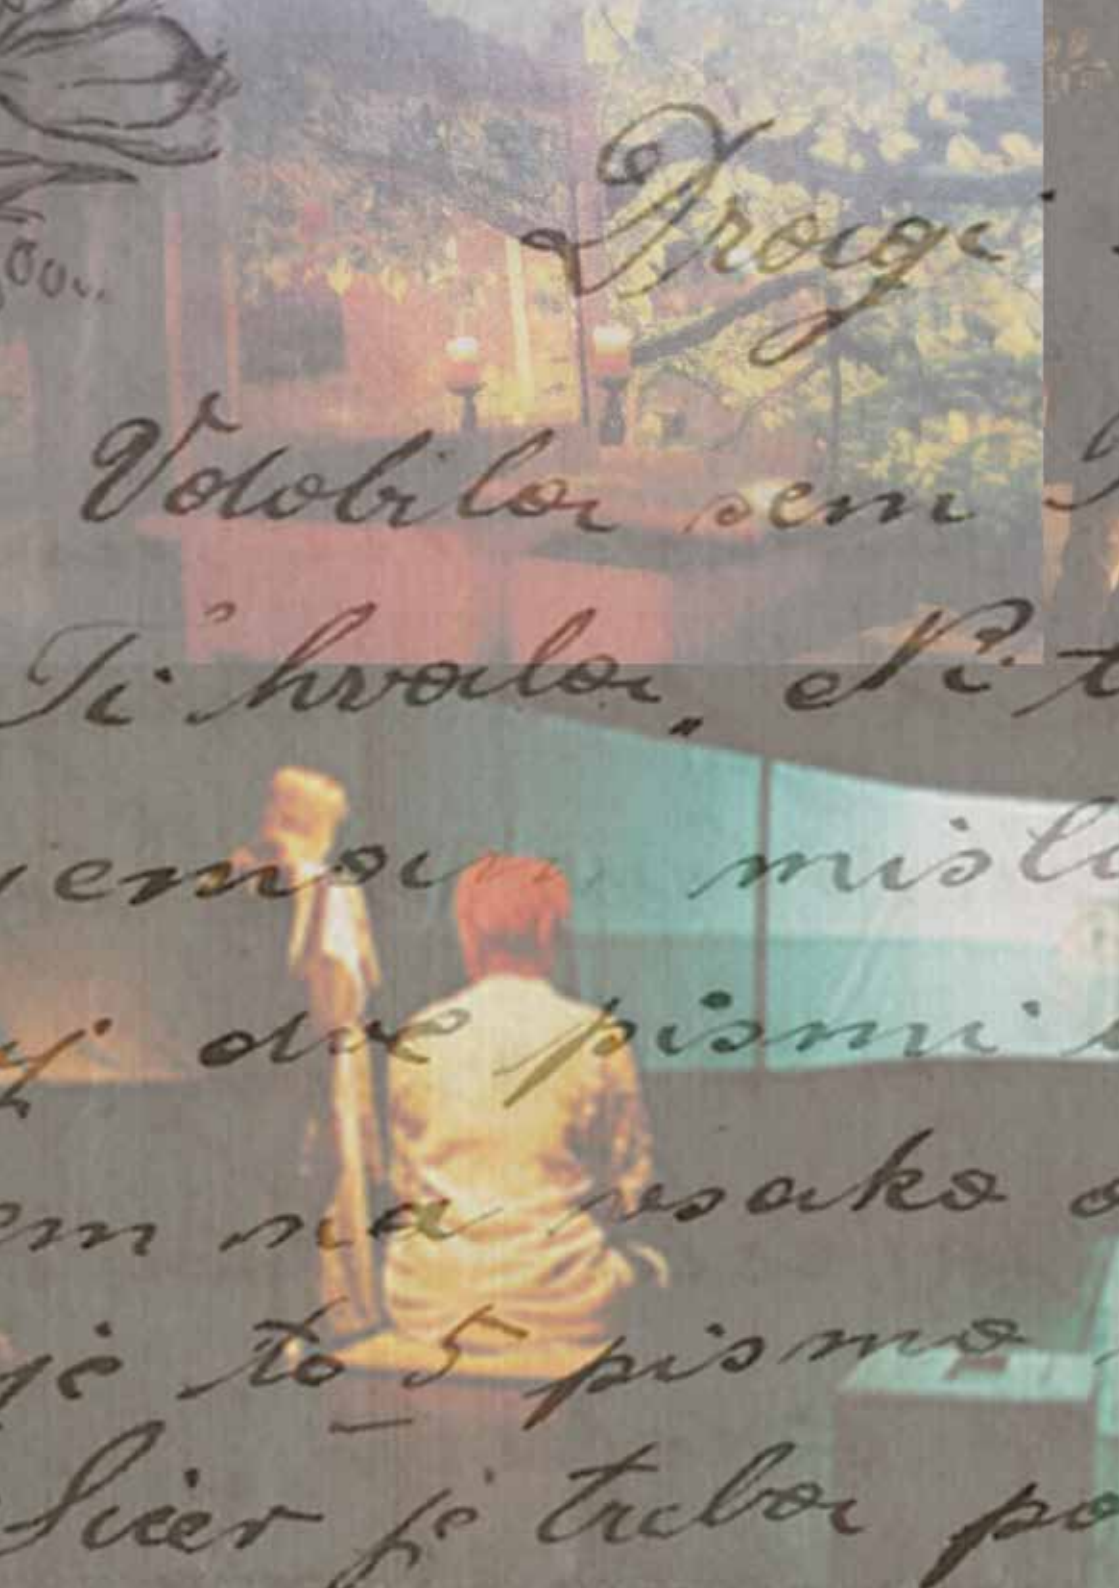 Dragi
Vdobila sem
Ti hvala, Ni
misli
dve pismi
em na vsako
je to 5 pismo
Sicer je treba po